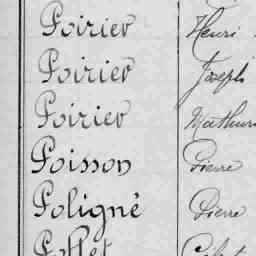 Poirier Henri
Poirier Joseph
Poirier Mathuri
Poisson Pierre
Poligné Pierre
Pollet